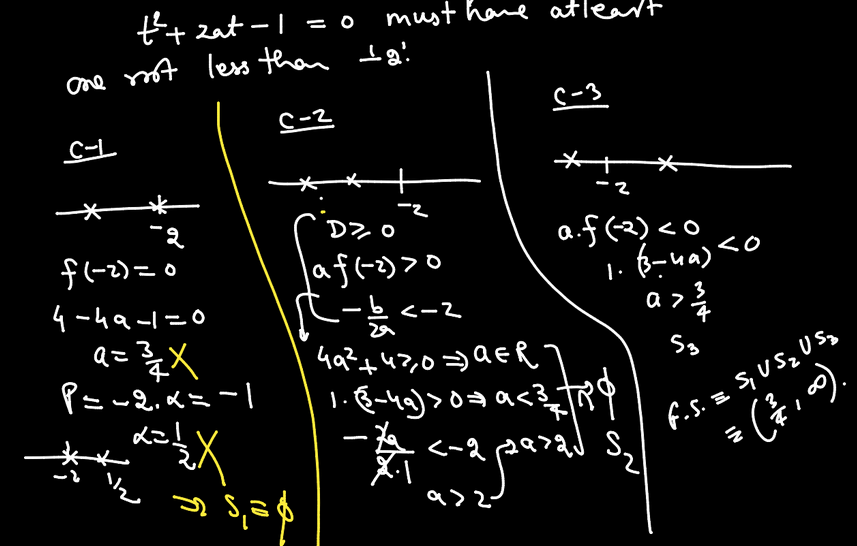 t² + 2at - 1 = 0 must have atleast
one root less than '-2'.
C-1
-2
f(-2) = 0
4 - 4a - 1 = 0
a = 3/4 X
P = -2.α = -1
α = 1/2 X
-2 1/2
⇒ S₁ = ϕ
C-2
-2
D ≥ 0
a f(-2) > 0
-b/2a < -2
4a² + 4 ≥ 0 ⇒ a ∈ R
1.(3-4a) > 0 ⇒ a < 3/4 ϕ
-2a/2.1 < -2 a > 2
a > 2
S₂
C-3
-2
a.f(-2) < 0
1.(3-4a) < 0
a > 3/4
S₃
f.S. ≡ S₁ ∪ S₂ ∪ S₃
≡ (3/4, ∞).